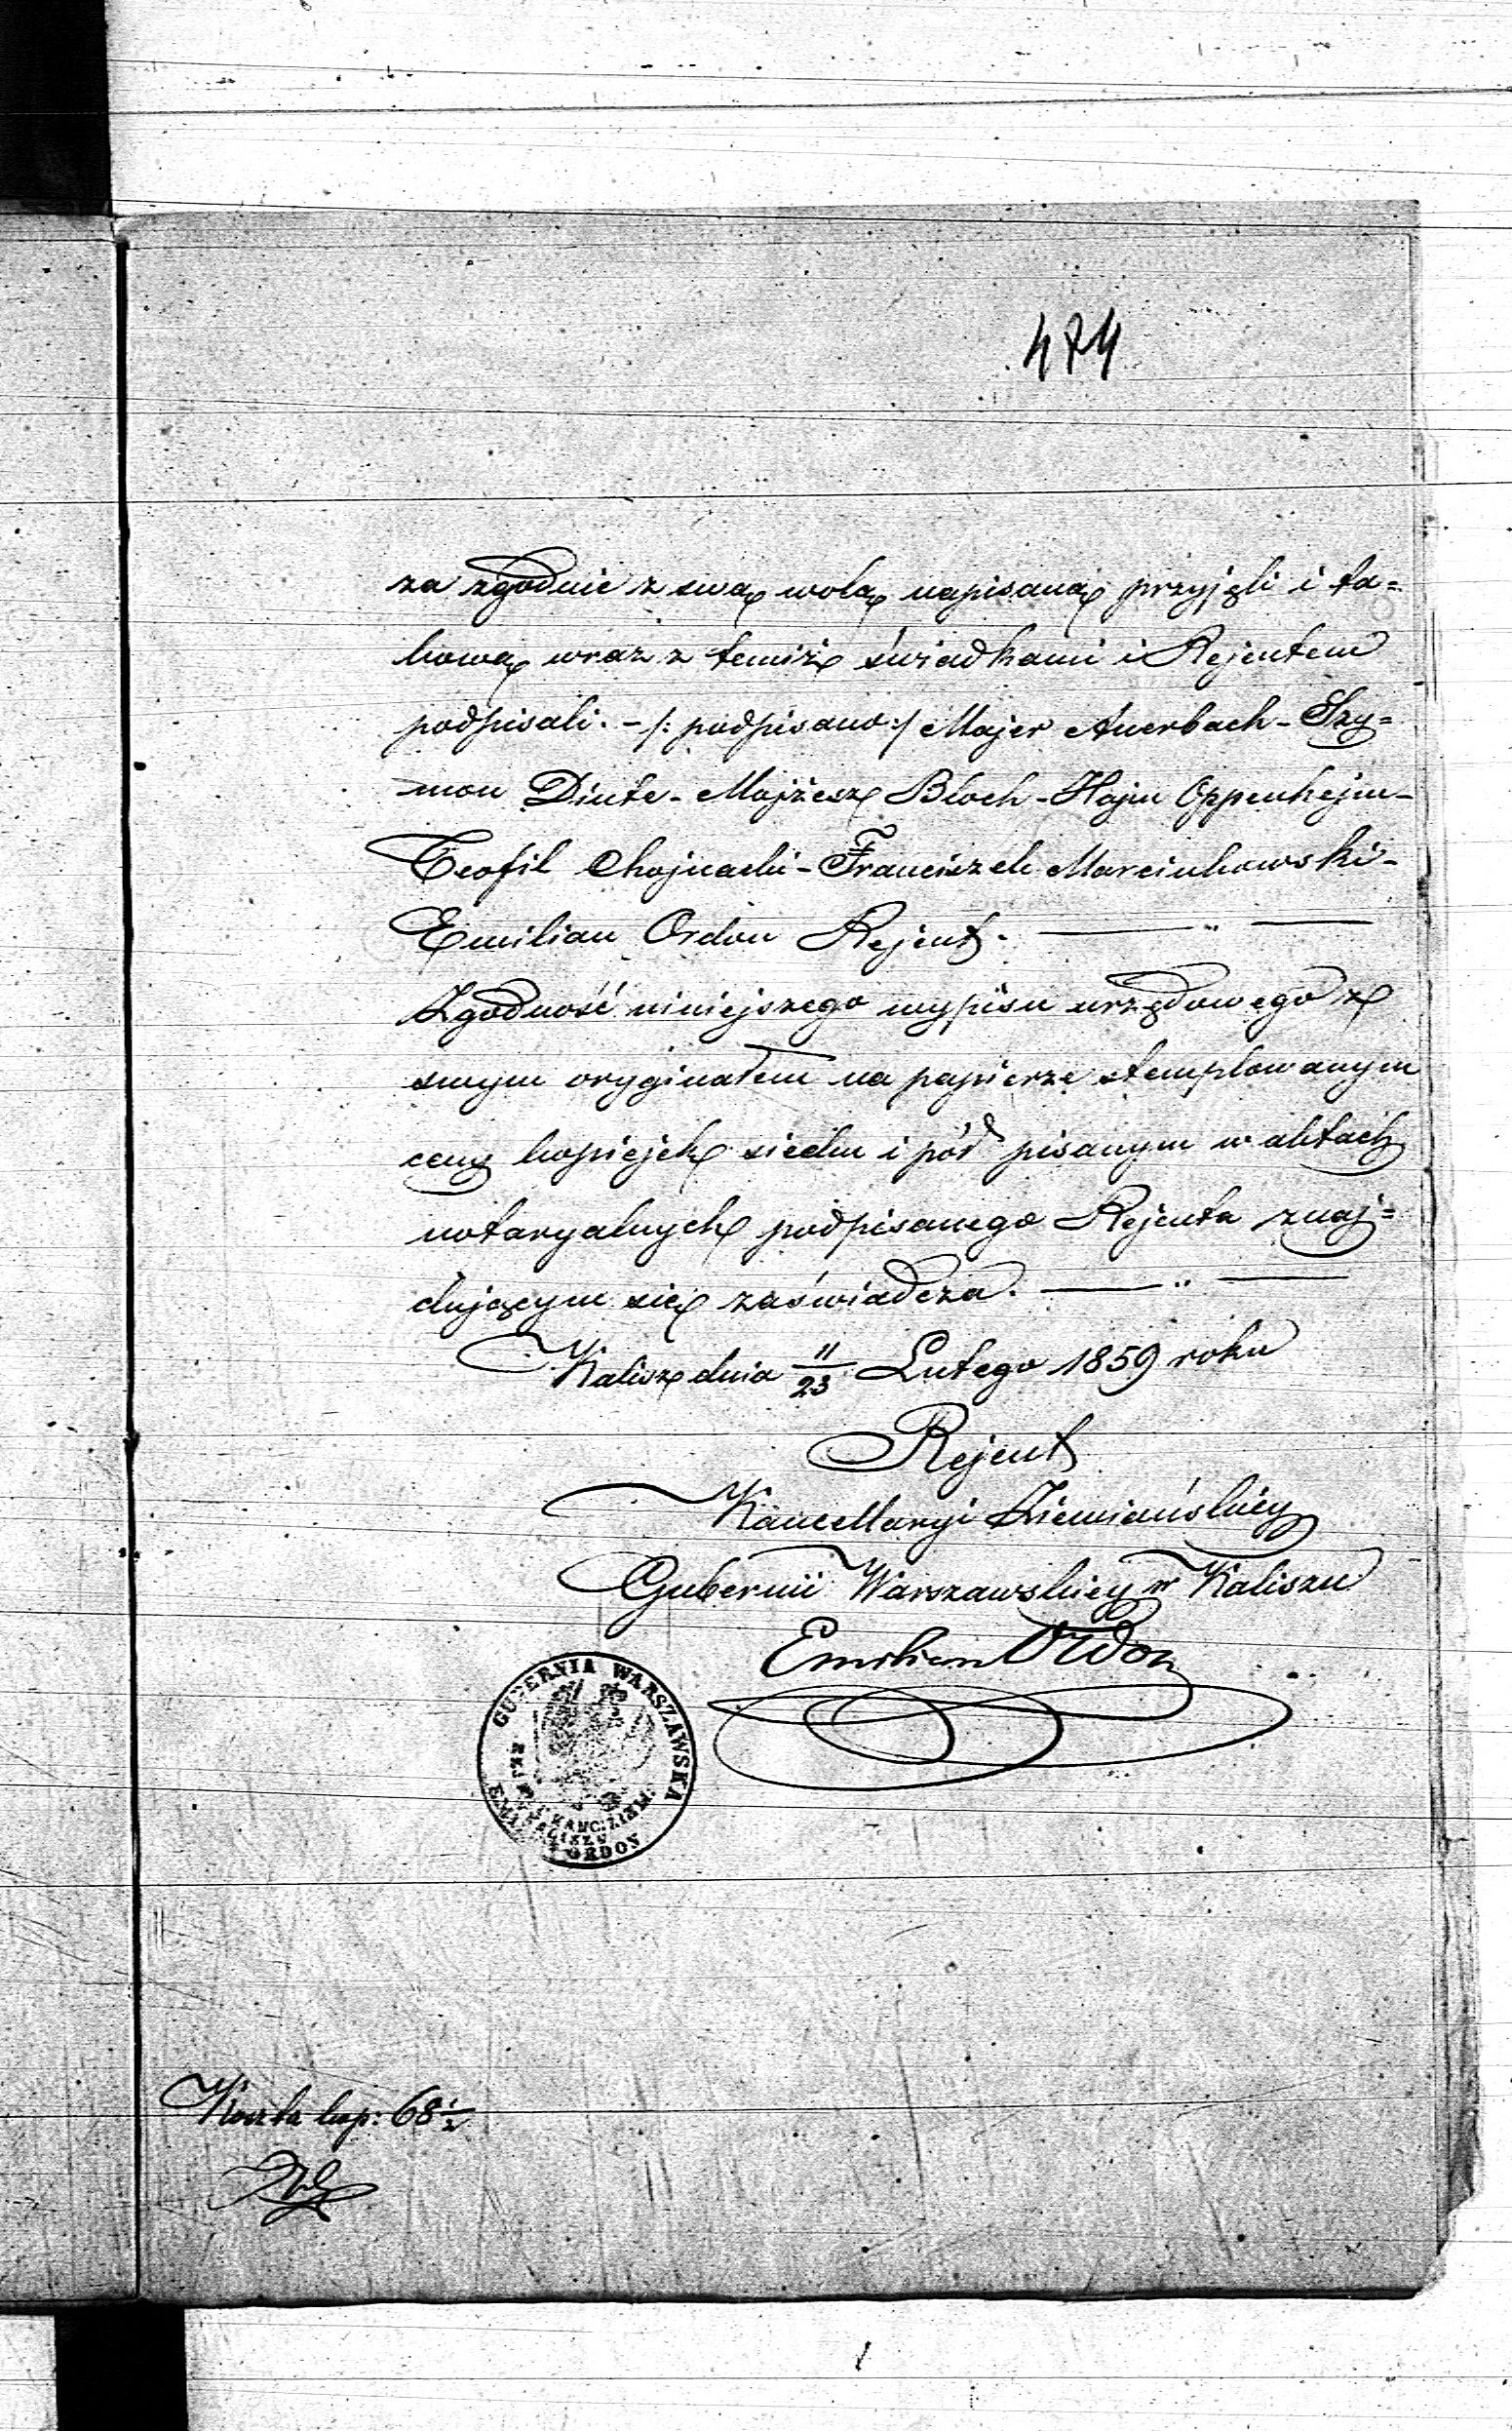 474
za zgodnie z swą wolą napisaną przyjęli i ta=
kową wraz z temiż świadkami i Rejentem
podpisali. - /: podpisano :/ Majer Auerbach - Szy=
mon Dinte - Mojżesz Bloch - Hajm Oppenhejm -
Teofil Chojnacki - Franciszek Marcinkowski -
Emilian Ordon Rejent. — " —
Zgodność niniejszego wypisu urzędowego z
swym oryginałem na papierze stemplowanym
ceny kopiejek siedm i pół pisanym w aktach
notaryalnych podpisanego Rejenta znaj=
dującym się zaświadcza. — " —
Kalisz dnia 11/23 Lutego 1859 roku
Rejent
Kancellaryi Ziemiańskiey
Gubernii Warszawskiey w Kaliszu
Emilian Ordon
GUBERNIA WARSZAWSKA
KANC: ZIEM:
ORDON
Koszta kop: 68 1/2